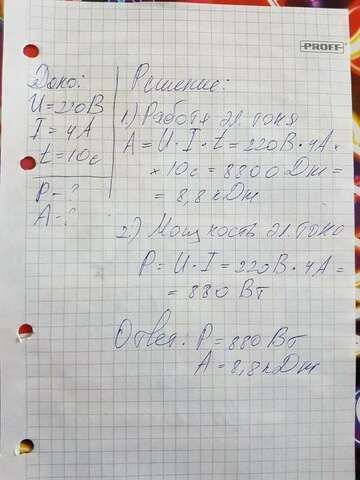 PROFF
Дано:
U=220В
I=4А
t=10с
P-?
A-?
Решение:
1) Работа эл. тока
A=U·I·t=220В·4А×
×10с=8800Дж=
=8,8кДж
2) Мощность эл. тока
P=U·I=220В·4А=
=880 Вт
Ответ: P=880 Вт
A=8,8кДж